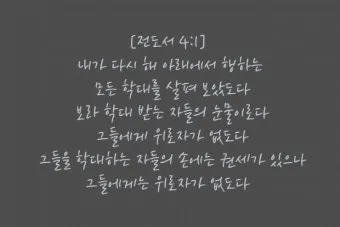 [전도서 4:1]
내가 다시 해 아래에서 행하는
모든 학대를 살펴 보았도다
보라 학대 받는 자들의 눈물이로다
그들에게 위로자가 없도다
그들을 학대하는 자들의 손에는 권세가 있으나
그들에게는 위로자가 없도다